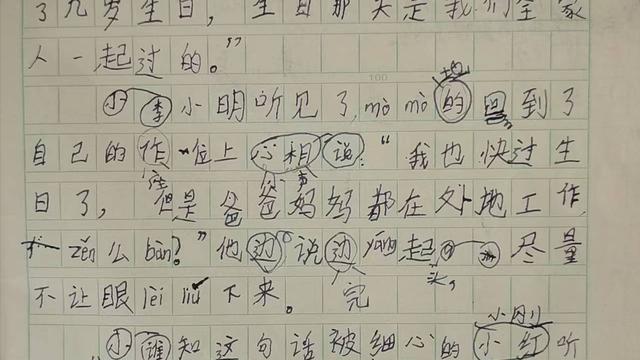 了九岁生日，生日那天是我们全家
人一起过的。”
小李小明听见了，mò mò的回到了
自己的作位上心相说：“我也快过生
日了，但是爸爸妈妈都在外地工作，
zěn么bàn？”他边说边起 尽量
不让眼lèi liú下来。完
小谁知这句话被细心的小红听